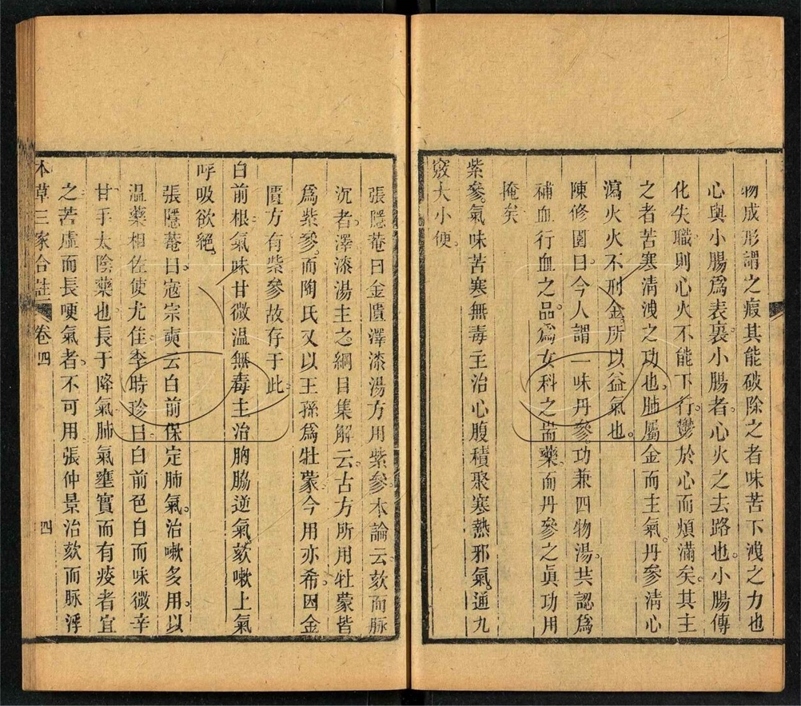 物成形謂之瘕其能破除之者味苦下洩之力也
心與小腸爲表裏小腸者心火之去路也小腸傳
化失職則心火不能下行鬱於心而煩滿矣其主
之者苦寒清洩之功也肺屬金而主氣丹參清心
瀉火火不刑金所以益氣也
陳修園曰今人謂一味丹參功兼四物湯共認爲
補血行血之品爲女科之耑藥而丹參之眞功用
掩矣
紫參氣味苦寒無毒主治心腹積聚寒熱邪氣通九
竅大小便
張隱菴曰金匱澤漆湯方用紫參本論云欬而脈
沉者澤漆湯主之綱目集解云古方所用牡蒙皆
爲紫參而陶氏又以王孫爲牡蒙今用亦希因金
匱方有紫參故存于此
白前根氣味甘微溫無毒主治胸脇逆氣欬嗽上氣
呼吸欲絕
張隱菴曰寇宗奭云白前保定肺氣治嗽多用以
溫藥相佐使尤佳李時珍曰白前色白而味微辛
甘手太陰藥也長于降氣肺氣壅實而有痰者宜
之若虛而長哽氣者不可用張仲景治欬而脈浮
本草三家合註 卷四 四